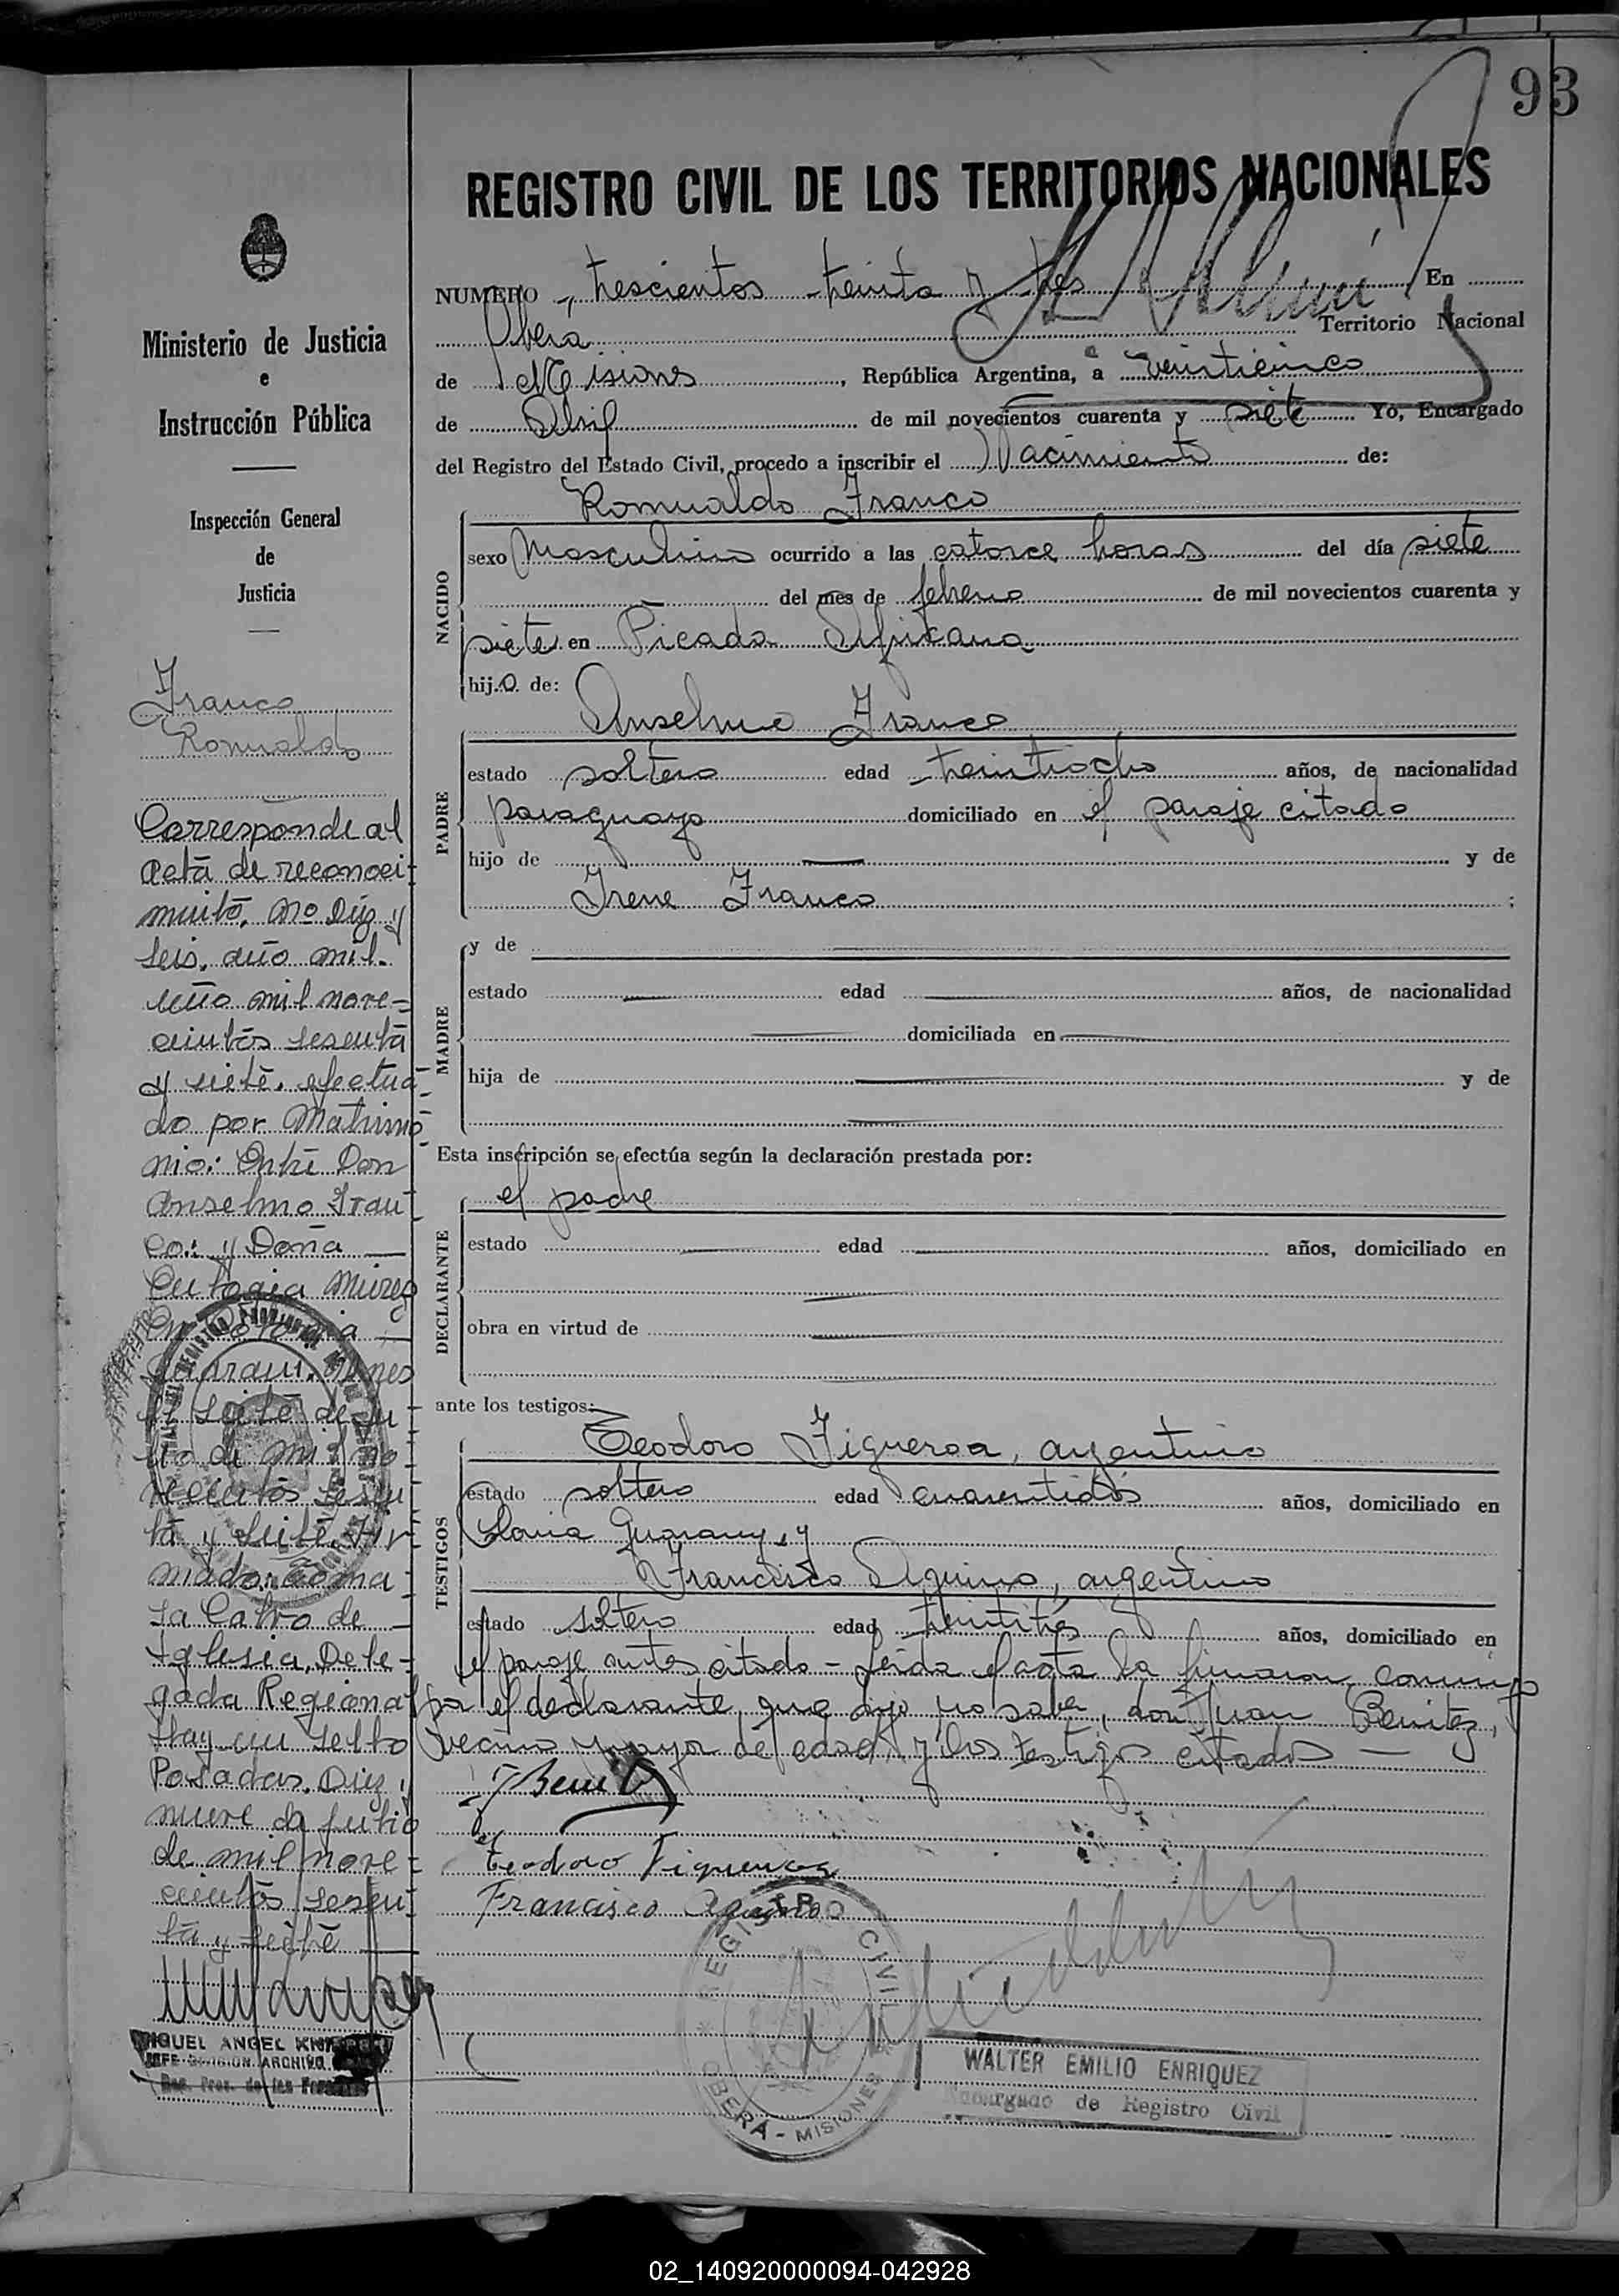 93
REGISTRO CIVIL DE LOS TERRITORIOS NACIONALES
Ministerio de Justicia
e
Instrucción Pública
Inspección General
de
Justicia
Franco
Romualdo
Corresponde al
acta de reconoci-
miento, Nº Diez y
seis, año mil-
mil nove-
cientos sesenta
y siete, efectua-
do por Matrimo-
nio: Entre Don
Anselmo Fran-
co: y Doña
Eulogia
En
el siete de Ju-
lio de mil no-
vecientos sesen-
ta y siete. Fir-
mado: Toma-
sa Calvo de
Iglesia, Dele-
gada Regional
Hay un sello
Posadas, Diez y
nueve de Julio
de mil nove-
cientos sesen-
ta y siete
MIGUEL ANGEL
JEFE DIVISION ARCHIVO
NUMERO trescientos treinta y tres En
Oberá Territorio Nacional
de Misiones, República Argentina, a veinticinco
de Abril de mil novecientos cuarenta y siete Yo, Encargado
del Registro del Estado Civil, procedo a inscribir el Nacimiento de:
NACIDO
Romualdo Franco
sexo masculino ocurrido a las catorce horas del día siete
del mes de febrero de mil novecientos cuarenta y
siete en Picada Africana
hijo de:
PADRE
Anselmo Franco
estado soltero edad treintiocho años, de nacionalidad
paraguayo domiciliado en el paraje citado
hijo de — y de
Irene Franco ;
MADRE
y de
estado — edad — años, de nacionalidad
— domiciliada en —
hija de — y de
—
Esta inscripción se efectúa según la declaración prestada por:
DECLARANTE
el padre
estado — edad — años, domiciliado en
—
obra en virtud de —
—
ante los testigos:
TESTIGOS
Teodoro Figueroa, argentino
estado soltero edad cuarentidós años, domiciliado en
Guarany, y
Francisco Aquino, argentino
estado soltero edad treintitrés años, domiciliado en
el paraje antes citado - Leída el acta la firmaron conmigo
por el declarante, que dijo no saber, don Juan Benitez,
vecino mayor de edad, y los testigos citados —
J Benitez
Teodoro Figueroa
Francisco Aquino
REGISTRO CIVIL
OBERA - MISIONES
WALTER EMILIO ENRIQUEZ
Encargado de Registro Civil
02_140920000094-042928